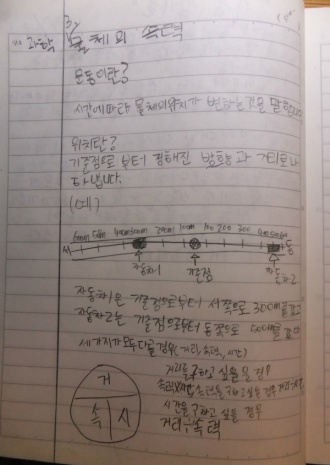 과학 물체의 속력
운동이란?
시간에따라 물체의위치가 변하는것을 말한다
위치란?
기준점으로 부터 정해진 방향과 거리로 나
타냅니다.
(예)
서 100 200 300 동
자동차1 기준점 자동차2
자동차1은 기준점으로부터 서쪽으로 300m를갔고
자동차2는 기준점으로부터 동쪽으로 400m를 갔다
세가지가모두다를경우(거리,속력,시간)
거
속 시
거리를구하고싶을 경우
시간을구하고 싶을 경우
거리÷속력